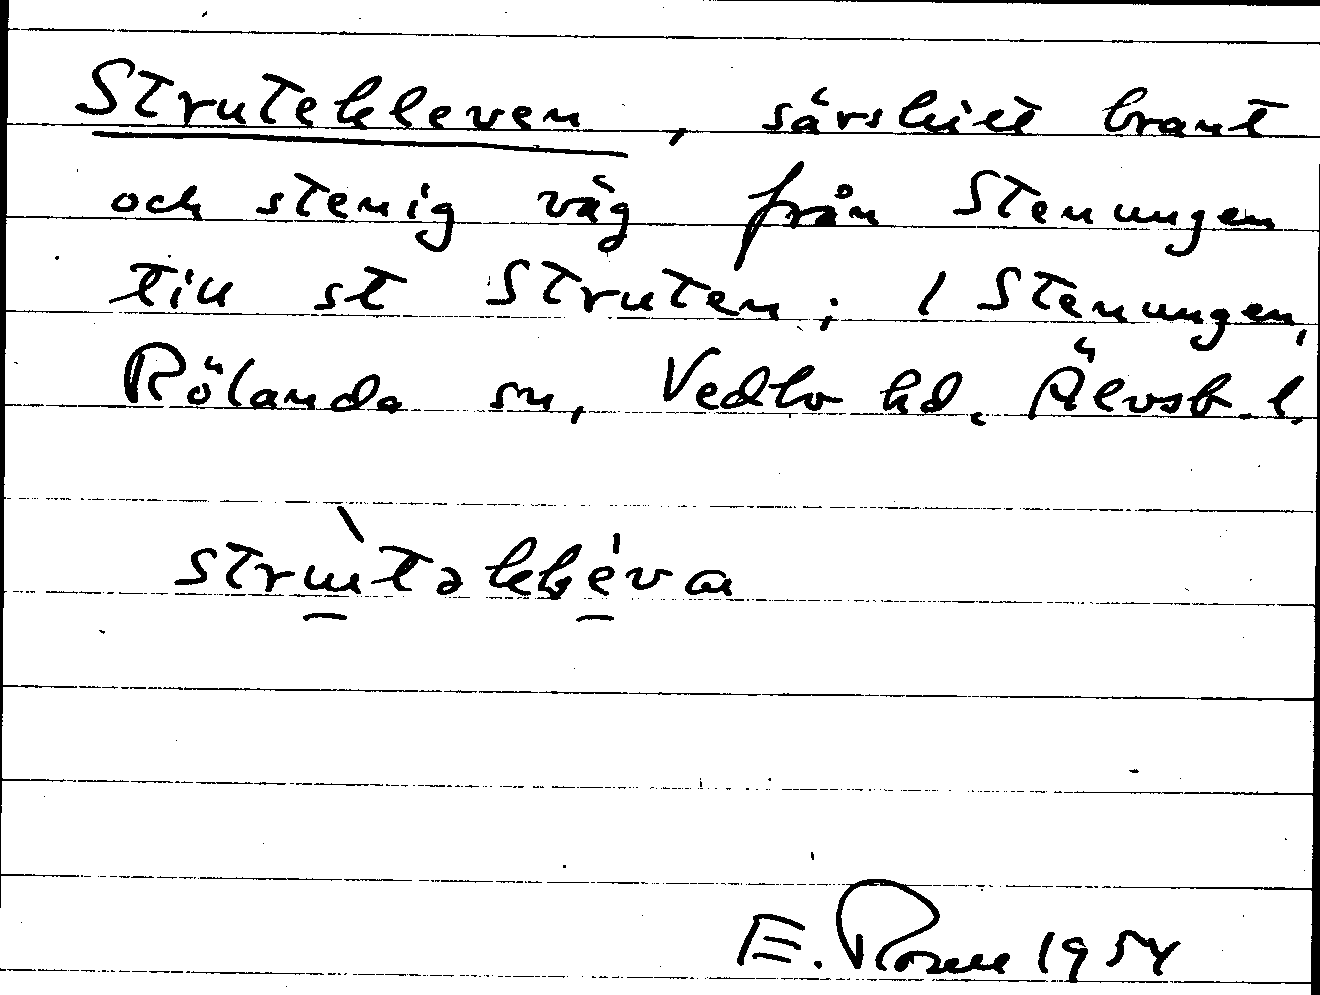 Strutekleven, särskilt brant
och stenig väg från Stenungen
till st Struten; l Stenungen,
Rölanda sn, Vedbo hd. Älvsb. l.
E. 1954